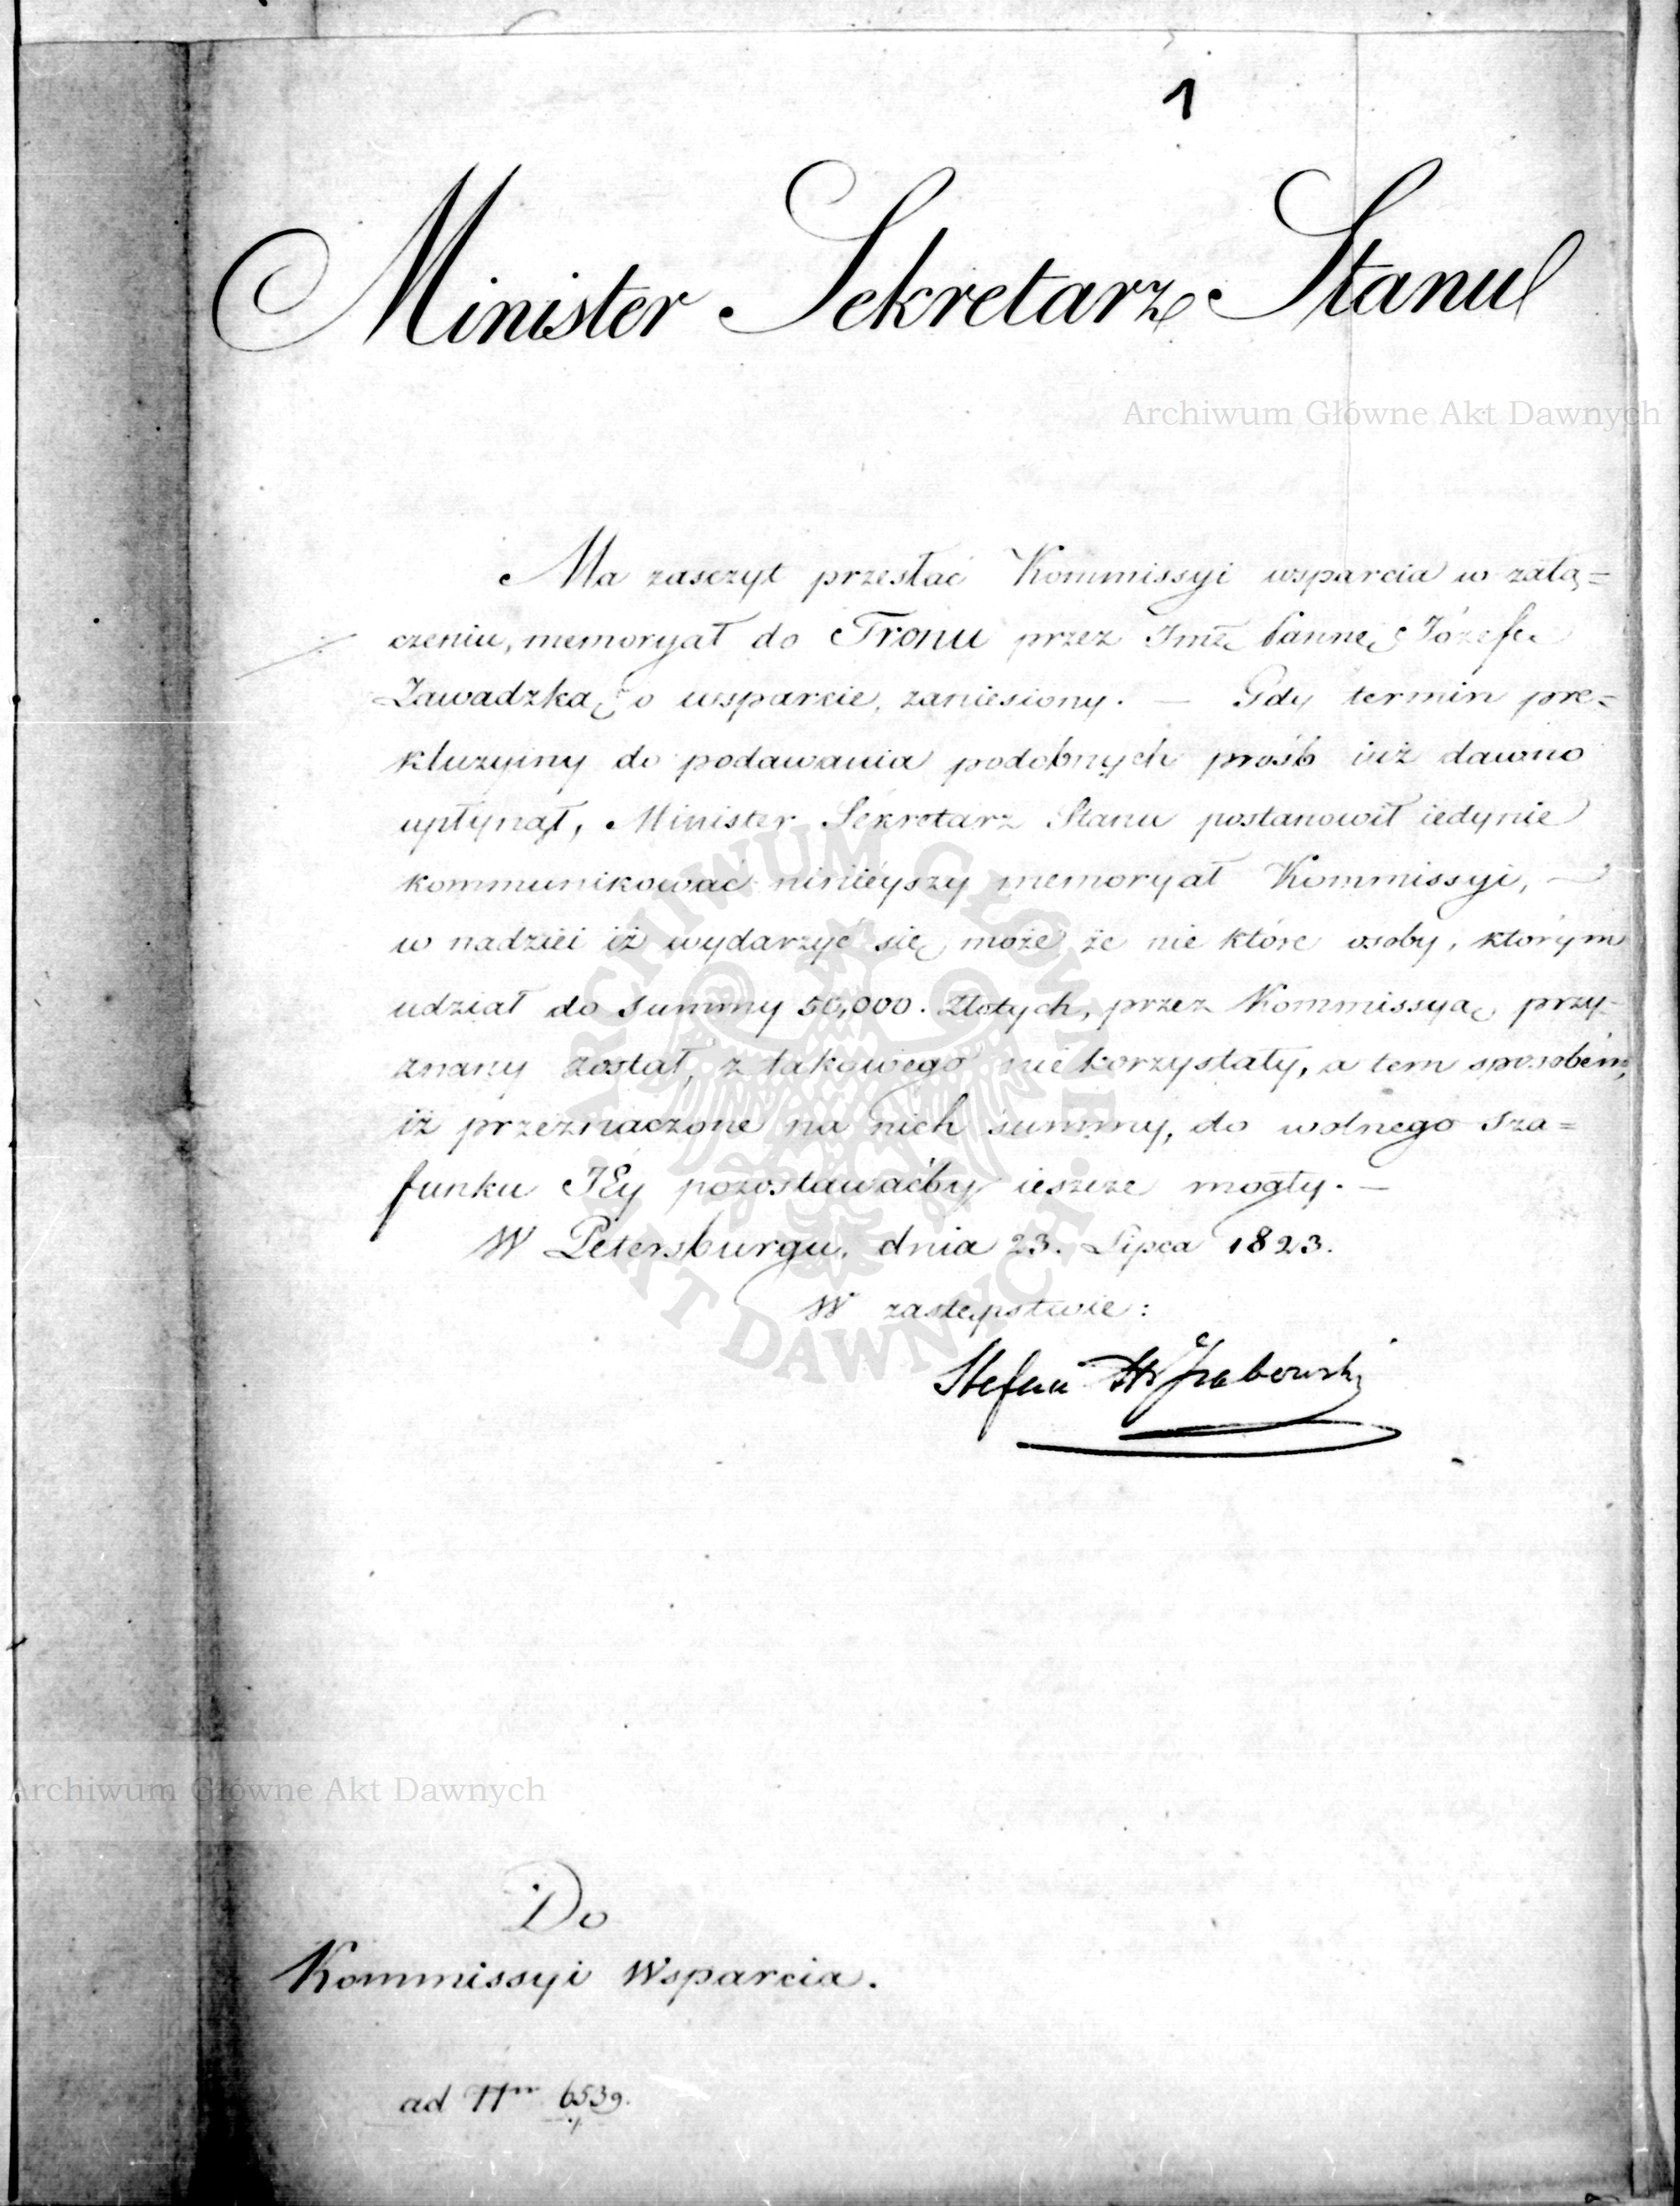 1
Minister Sekretarz Stanu
Archiwum Główne Akt Dawnych
Ma zasczyt przesłać Kommissyi wsparcia w załą=
czeniu, memoryał do Tronu przez Jmć Pannę Józefę
Zawadzką o wsparcie, zaniesiony. — Gdy termin pre=
kluzyiny do podawania podobnych prośb iuż dawno
upłynął, Minister Sekretarz Stanu postanowił iedynie
kommunikować ninieyszy memoryał Kommissyi, —
w nadziei iż wydarzyć się może że nie które osoby, którym
udział do summy 50,000. Złotych, przez Kommissyą przy-
znany został, z takowego nie korzystały, a tem sposobem,
iż przeznaczone na nich summy, do wolnego sza=
funku JEy pozostawaćby ieszcze mogły. —
W Petersburgu, dnia 23. Lipca 1823.
W zastępstwie:
Stefan Grabowski
ARCHIWUM GŁÓWNE AKT DAWNYCH
Archiwum Główne Akt Dawnych
Do
Kommissyi Wsparcia.
ad 6539.